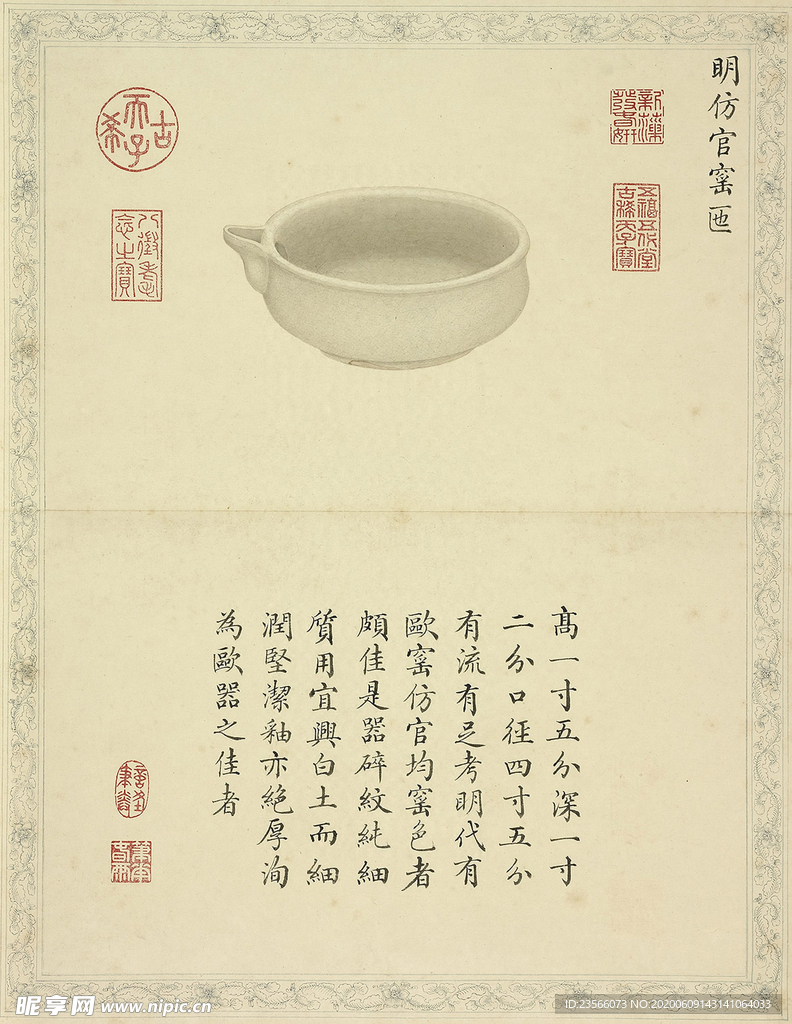 明仿官窯匜
古希天子
八徵耄念之寶
五福五代堂古稀天子寶
高一寸五分深一寸
二分口徑四寸五分
有流有足考明代有
歐窯仿官均窯色者
頗佳是器碎紋純細
質用宜興白土而細
潤堅潔釉亦絕厚洵
為歐器之佳者
昵享网 www.nipic.cn
ID:23566073 NO:20200609143141064033